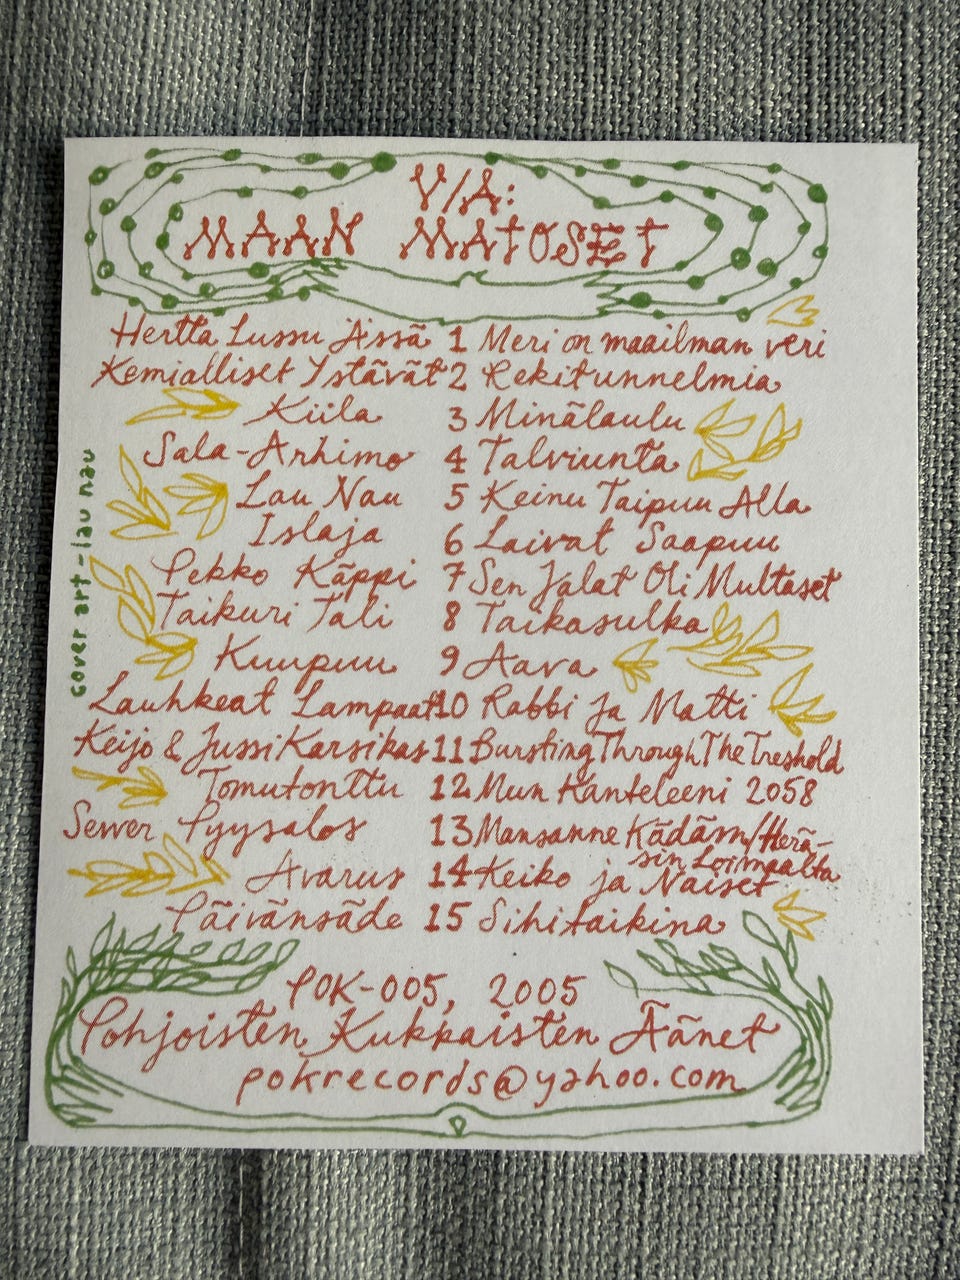 V/A:
MAAN MATOSET
Hertta Lussu Ässä 1 Meri on maailman veri
Kemialliset Ystävät 2 Rekitunnelmia
Kiila 3 Minälaulu
Sala-Arhimo 4 Talviunta
Lau Nau 5 Keinu Taipuu Alla
Islaja 6 Laivat Saapuu
Pekko Käppi 7 Sen Jalat Oli Multaset
Taikuri Tali 8 Taikasulka
Kuupuu 9 Aava
Lauhkeat Lampaat 10 Rabbi Ja Matti
Keijo & Jussi Karsikas 11 Bursting Through The Treshold
Tomutonttu 12 Mun Kanteleeni 2058
Sewer Pyysalos 13 Mansanne Kädäsm/Herä-
sin Loimaalta
Avarus 14 Keiko ja Naiset
Päivänsäde 15 Sihitaikina
POK-005, 2005
Pohjoisten Kukkaisten Äänet
pokrecords@yahoo.com
cover art-lau nau